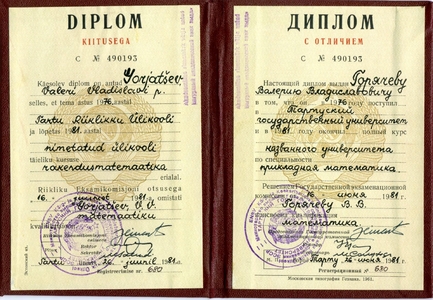 DIPLOM
KIITUSEGA
С № 490193
Käesolev diplom on antud Gorjatšev,
Valeri Vladislavi p.
selles, et tema astus 1976. aastal
Tartu Riiklikku Ülikooli
ja lõpetas 1981. aastal
nimetatud ülikooli
täieliku kursuse
rakendusmatemaatika
erialal.
Riikliku Eksamikomisjoni otsusega
16. juunist 1981. a. omistati
Gorjatšev V. V.
matemaatiku
kvalifikatsioon.
Rektor
Sekretär
Tartu 26. juunil 1981.
Registreerimise nr. 680
ДИПЛОМ
С ОТЛИЧИЕМ
С № 490193
Настоящий диплом выдан Горячеву
Валерию Владиславовичу
в том, что он в 1976 году поступил
в Тартуский
государственный университет
и в 1981 году окончил полный курс
названного университета
по специальности
прикладная математика.
Решением Государственной экзаменационной
комиссии от 16 июня 1981 г.
Горячеву В. В.
математика.
Тарту 26 июня 1981 г.
Регистрационный № 680
Московская типография Гознака. 1981.